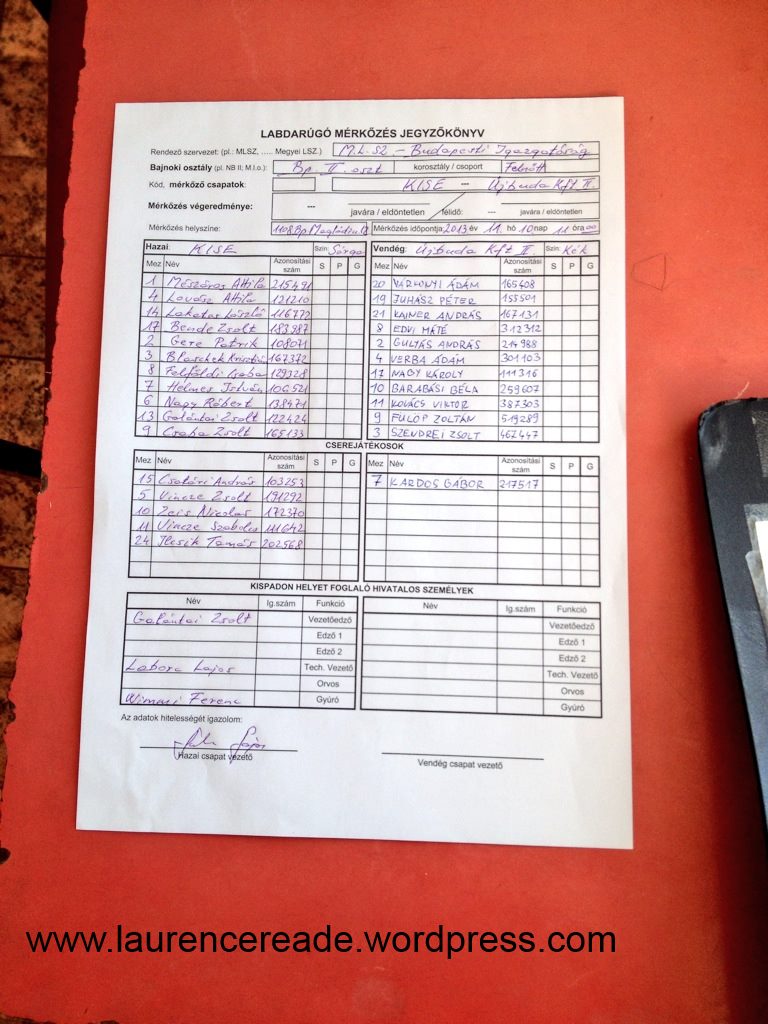 LABDARÚGÓ MÉRKŐZÉS JEGYZŐKÖNYV
Rendező szervezet: (pl.: MLSZ, ..... Megyei LSZ.) M.L.SZ. - Budapesti Igazgatóság
Bajnoki osztály (pl. NB II; M.I.o.): Bp. II. oszt korosztály / csoport Felnőtt
Kód, mérkőző csapatok: KISE --- Újbuda Kft II.
Mérkőzés végeredménye: --- javára / eldöntetlen félidő: --- javára / eldöntetlen
Mérkőzés helyszíne: 1108 Bp Mérkőzés időpontja: 2013 év 11. hó 10 nap 11 óra 00
Hazai: KISE Szín: Sárga Vendég: Újbuda Kft II Szín: Kék
Mez Név Azonosítási szám S P G Mez Név Azonosítási szám S P G
1 Mészáros Attila 215491 20 VÁRKONYI ÁDÁM 165408
4 Lovász Attila 121210 19 JUHÁSZ PÉTER 155501
14 Lakatos László 116772 21 KAJNER ANDRÁS 167131
17 Bende Zsolt 183987 8 EDVI MÁTÉ 312312
2 Gere Patrik 108071 2 GULYÁS ANDRÁS 214988
3 Blaschek Krisztián 167372 4 VERBA ÁDÁM 301103
8 Felföldi Csaba 129328 17 NAGY KÁROLY 111316
7 Helmes István 106521 10 BARABÁSI BÉLA 259607
6 Nagy Róbert 138471 11 KOVÁCS VIKTOR 387303
13 Galántai Zsolt 122424 9 FÜLÖP ZOLTÁN 519289
9 Csaba Zsolt 165133 3 SZENDREI ZSOLT 467447
CSEREJÁTÉKOSOK
Mez Név Azonosítási szám S P G Mez Név Azonosítási szám S P G
15 András 103253 7 KARDOS GÁBOR 217517
5 Vincze Zsolt 191292
10 Zeis Nicolas 172370
11 Vincze Szabolcs 111642
24 Ilcsik Tamás 202568
KISPADON HELYET FOGLALÓ HIVATALOS SZEMÉLYEK
Név Ig.szám Funkció Név Ig.szám Funkció
Galántai Zsolt Vezetőedző Vezetőedző
Edző 1 Edző 1
Edző 2 Edző 2
Laborc Lajos Tech. Vezető Tech. Vezető
Orvos Orvos
Ferenc Gyúró Gyúró
Az adatok hitelességét igazolom:
Hazai csapat vezető Vendég csapat vezető
www.laurencereade.wordpress.com